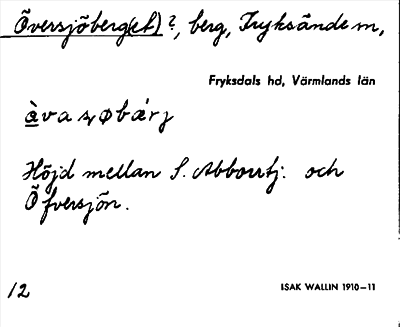 Översjöberg(et)?, berg, Fryksände m,
Fryksdals hd, Värmlands län
Höjd mellan S. Abborrtj. och
Öfversjön.
12
ISAK WALLIN 1910–11